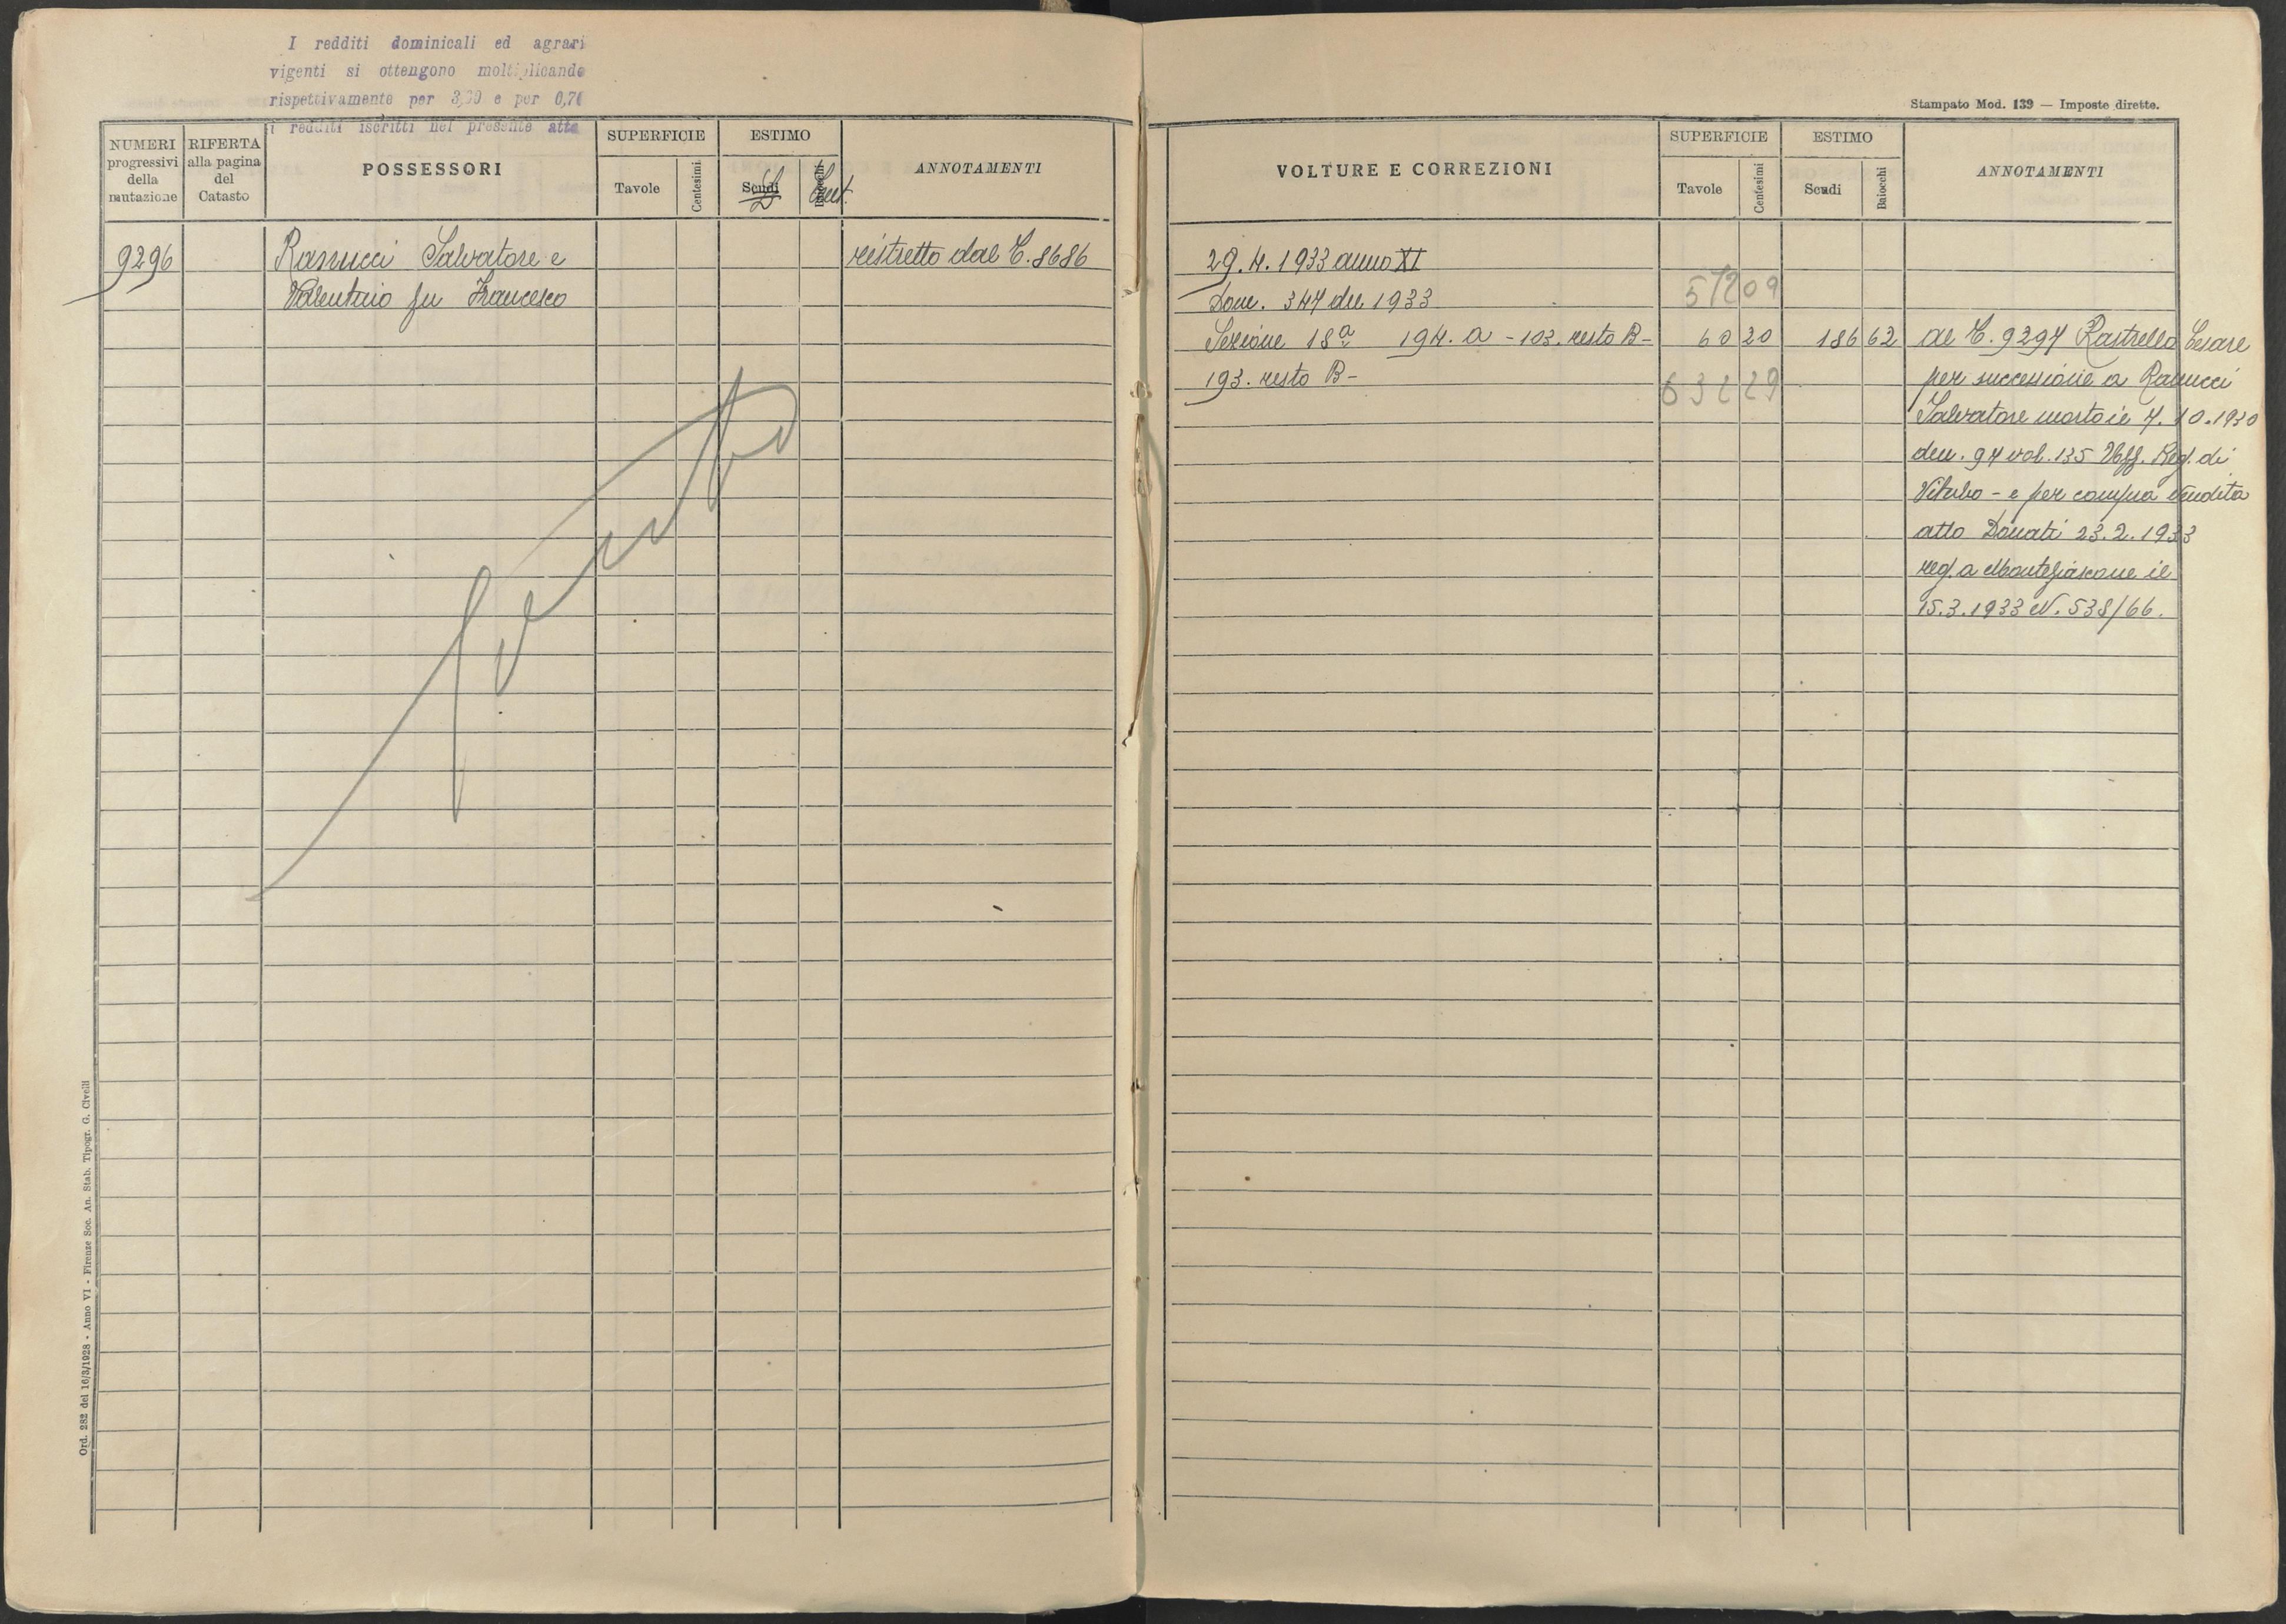 I redditi dominicali ed agrari
vigenti si ottengono moltiplicando
rispettivamente per e per 0,70
i redditi iscritti nel presente atto
NUMERI
progressivi
della
mutazione
RIFERTA
alla pagina
del
Catasto
POSSESSORI
SUPERFICIE
Tavole
Centesimi
ESTIMO
Scudi
Baiocchi
Cent.
ANNOTAMENTI
9296
Ranucci Salvatore e
Valentino fu Francesco
ristretto dal C. 8686
Ord. 282 del 16/3/1928 - Anno VI - Firenze Soc. An. Stab. Tipogr. G. Civelli
Stampato Mod. 139 — Imposte dirette.
VOLTURE E CORREZIONI
SUPERFICIE
Tavole
Centesimi
ESTIMO
Scudi
Baiocchi
ANNOTAMENTI
29.4.1933 anno XI
Dom. 347 del 1933
57209
Sezione 18a 194. a - 103. resto B- 60 20 186 62
193. resto B-
al C. 9297 Rastrello Cesare
per successione a Ranucci
Salvatore morto il 7.10.1930
den. 94 vol. 135 Uff. Reg. di
Viterbo - e per compra vendita
atto Donati 23.2.1933
reg. a Montefiascone il
15.3.1933 N. 538/66.